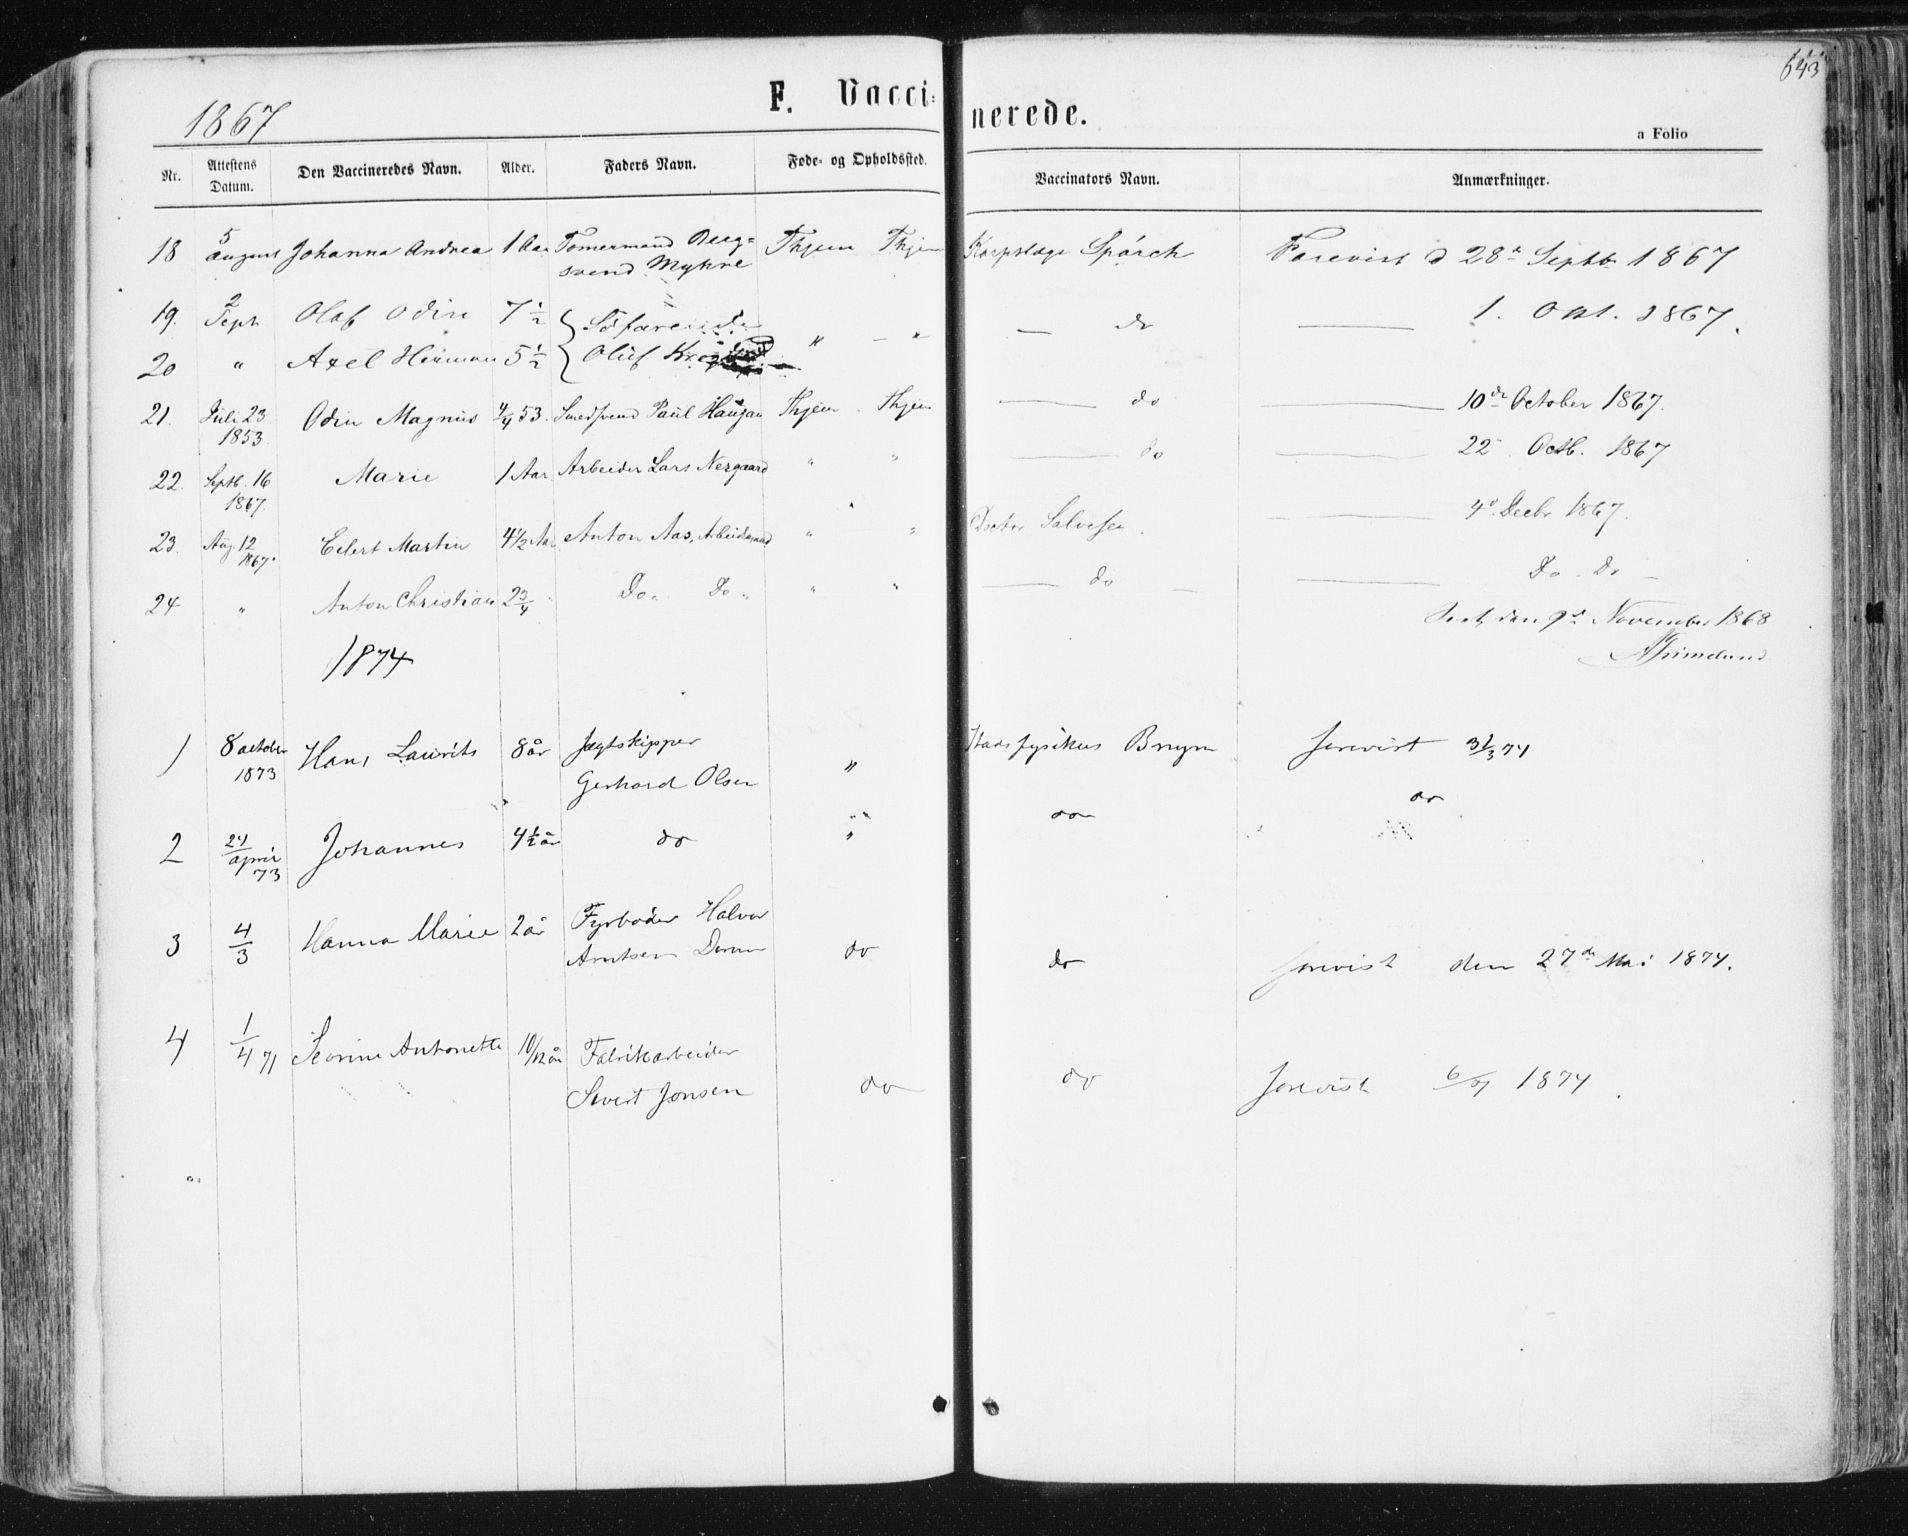 643
1867
F. Vaccinerede.
a Folio
Nr. Attestens Datum. Den Vaccineredes Navn. Alder. Faders Navn. Føde- og Opholdssted. Vaccinators Navn. Anmærkninger.
18 5 august Johanna Andrea 1 Aar Tømermand Berg= Thjem Thjem Korpslæge Spörck Forevist d 28de Septb 1867
svend Myhre
19. 2 Sept Olaf Odin 7 1/2 Søfarende " — " — do — 1. Okt. 1867.
20 " Axel Herman 5 1/2 Oluf
21. Juli 23 1853. Odin Magnus 4/4 53. Smedsvend Paul Haugan Thjem. Thjem — do — 10de October 1867.
22. Septb. 16 1867. Marie 1 Aar Arbeider Lars Nergaard " " — do — 22 Octb. 1867
23. Aug. 12 1867. Eilert Martin 4 1/2 Aar Anton Aas, Arbeidsmand " " Doctor Salvesen. — 4d Decbr 1867.
24 " Anton Christian 2 3/4 " Do. Do. " " — do — — Do. Do —
den 9de November 1868
Grimelund
1874
1 8 october 1873 Hans Laurits 8 år Jægtskipper " Stadsfysikus Bryn forevist 31/3 74
Gerhard Olsen
2 24/april 73 Johannes 4 1/2 år do " do do
3 4/3 Hanna Marie 2 år Fyrbøder Halvor
Arntsen do do forevist den 27de Mai 1874.
4 1/4 71 Antonette 10/12 år Fabrikarbeider
Sivert Jonsen do do forevist 6/7 1874.